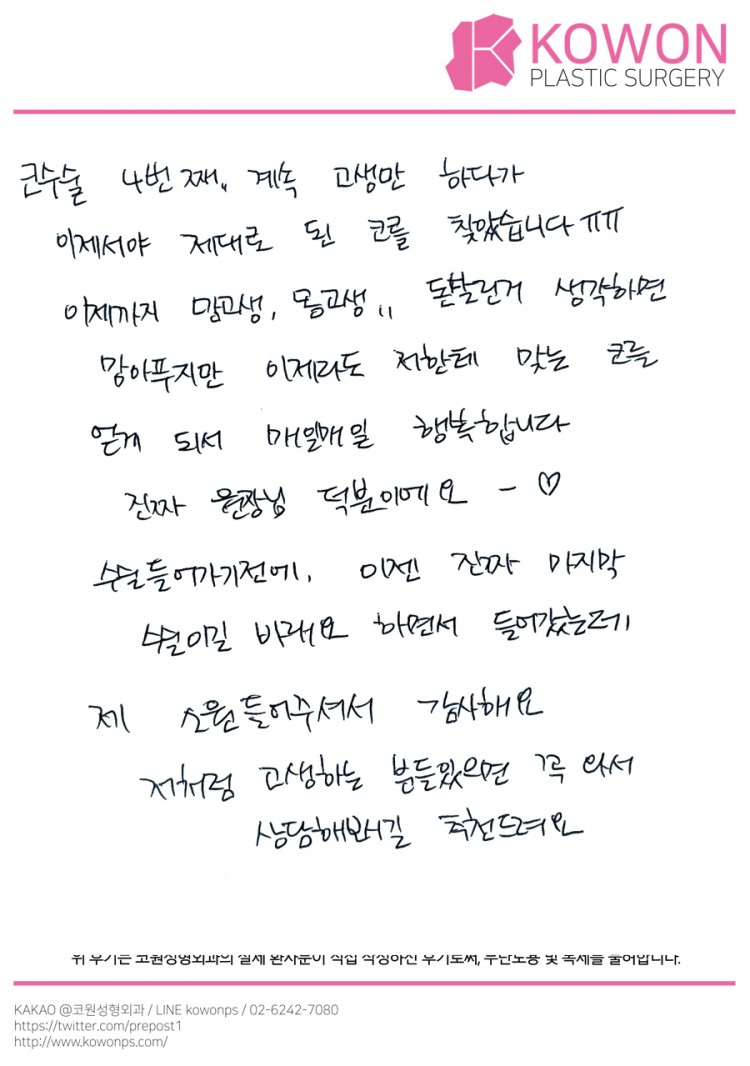 KOWON
PLASTIC SURGERY
코수술 4번째,, 계속 고생만 하다가
이제서야 제대로 된 코를 찾았습니다 ㅠㅠ
이제까지 맘고생, 몸고생,, 돈날린거 생각하면
맘아푸지만 이제라도 저한테 맞는 코를
얻게 되서 매일매일 행복합니다
진짜 원장님 덕분이에요 – ♡
수술들어가기전에, 이젠 진짜 마지막
수술이길 바래요 하면서 들어갔는데
제 소원들어주셔서 감사해요
저처럼 고생하는 분들있으면 꼭 와서
상담해보시길 추천드려요
위 후기는 코원성형외과의 실제 환자분이 직접 작성하신 후기로써, 무단도용 및 복제를 불허합니다.
KAKAO @코원성형외과 / LINE kowonps / 02-6242-7080
https://twitter.com/prepost1
http://www.kowonps.com/